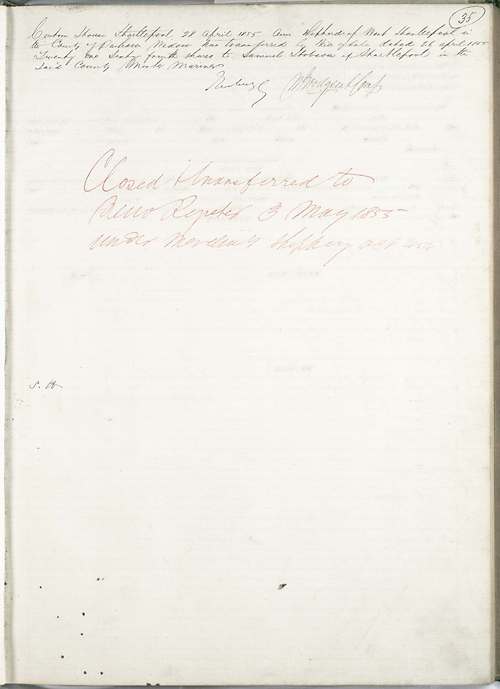 35
Custom House Hartlepool 28 April 1855 Ann of West Hartlepool in
the County of Durham Widow has transferred by Bill of Sale dated 26 April 1855
Twenty one Sixty fourth shares to Samuel of Hartlepool in the
Said County Master Mariner
Closed & transferred to
New Register 3 May 1855
under Merchant Shipping Act